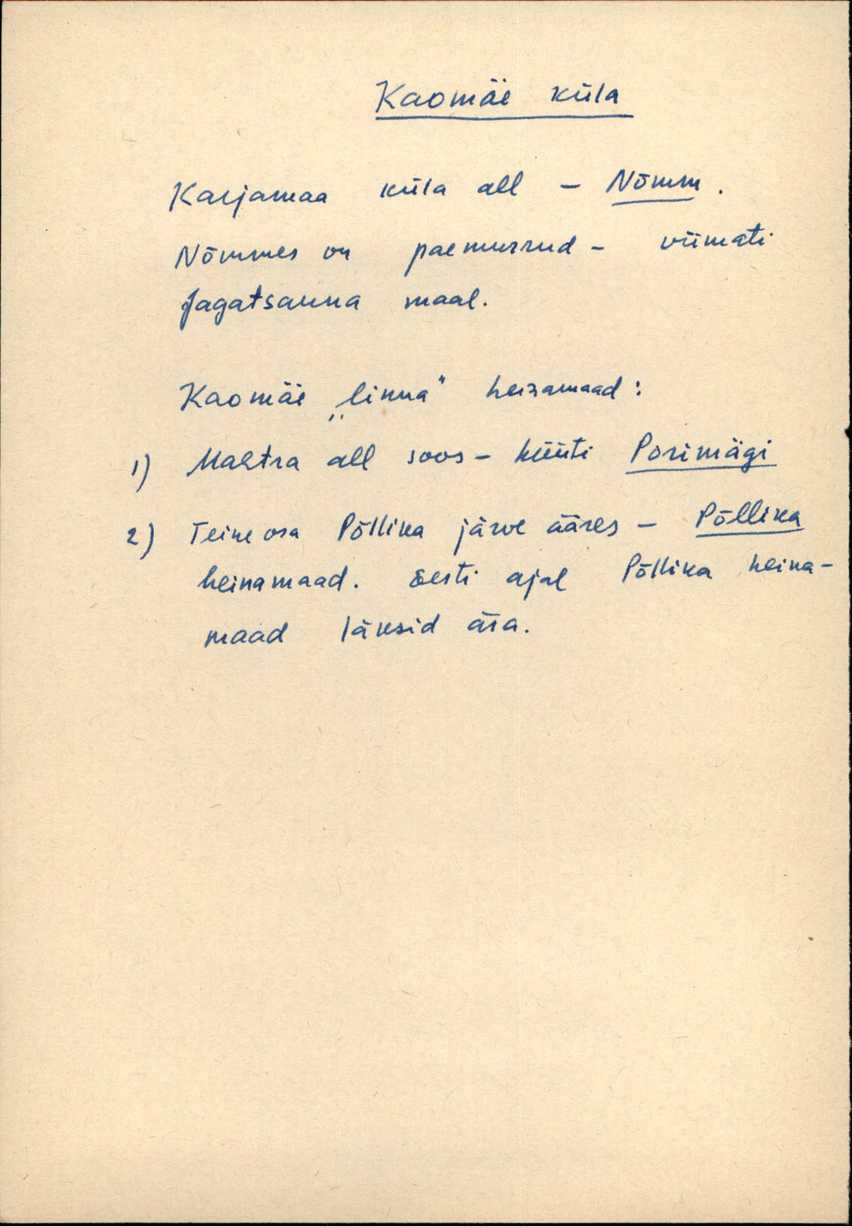 Kaomäe küla
Karjamaa küla all – Nõmm.
Nõmmes on paemurrud – viimati
Jagatsauna maal.
Kaomäe „linna" heinamaad:
1) Mahtra all soos – hüüti Porimägi
2) Teine osa Põllika järve ääres – Põllika
heinamaad. Eesti ajal Põllika heina-
maad läksid ära.